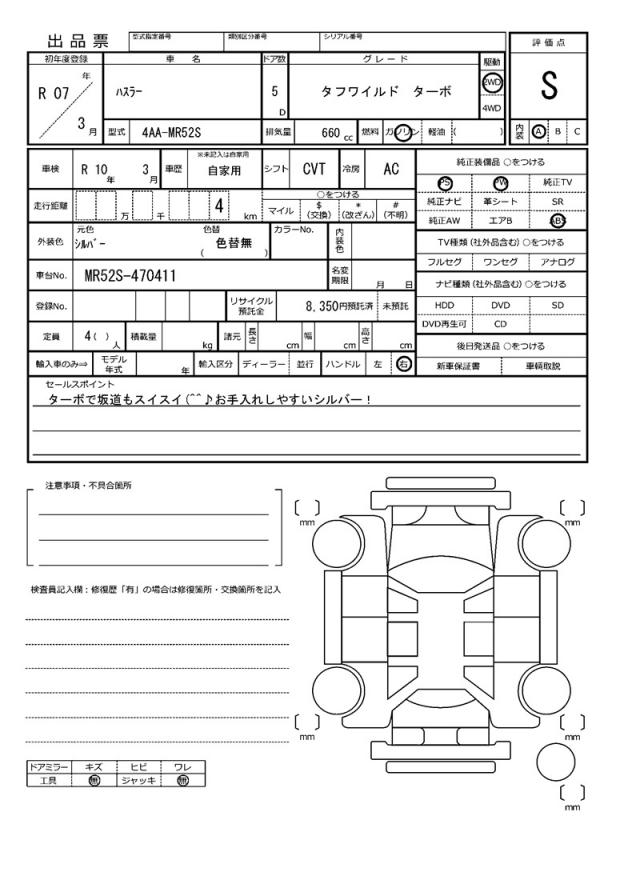 出品票 型式指定番号 類別区分番号 シリアル番号
評価点
初年度登録 車名 ドア数 グレード 駆動
R 07 年 3 月 ハスラー 5 D タフワイルド ターボ 2WD 4WD S
型式 4AA-MR52S 排気量 660 cc 燃料 ガソリン 軽油 ( ) 内装 A B C
車検 R 10 年 3 月 車歴 ※未記入は自家用 自家用 シフト CVT 冷房 AC
純正装備品 ○をつける
PS PW 純正TV
純正ナビ 革シート SR
純正AW エアB ABS
走行距離 万 千 4 km ○をつける
マイル $ (交換) * (改ざん) # (不明)
外装色 元色 シルバー 色替 ( 色替無 ) カラーNo. 内装色
TV種類 (社外品含む) ○をつける
フルセグ ワンセグ アナログ
車台No. MR52S-470411 名変期限 月 日
ナビ種類 (社外品含む) ○をつける
登録No. リサイクル預託金 8,350円預託済 未預託
HDD DVD SD
DVD再生可 CD
定員 4( ) 人 積載量 kg 諸元 長さ cm 幅 cm 高さ cm
後日発送品 ○をつける
輸入車のみ⇒ モデル年式 年 輸入区分 ディーラー 並行 ハンドル 左 右
新車保証書 車輌取説
セールスポイント
ターボで坂道もスイスイ(^^♪お手入れしやすいシルバー！
注意事項・不具合箇所
mm
mm
検査員記入欄：修復歴「有」の場合は修復箇所・交換箇所を記入
mm
mm
ドアミラー キズ ヒビ ワレ
工具 無 ジャッキ 無
mm